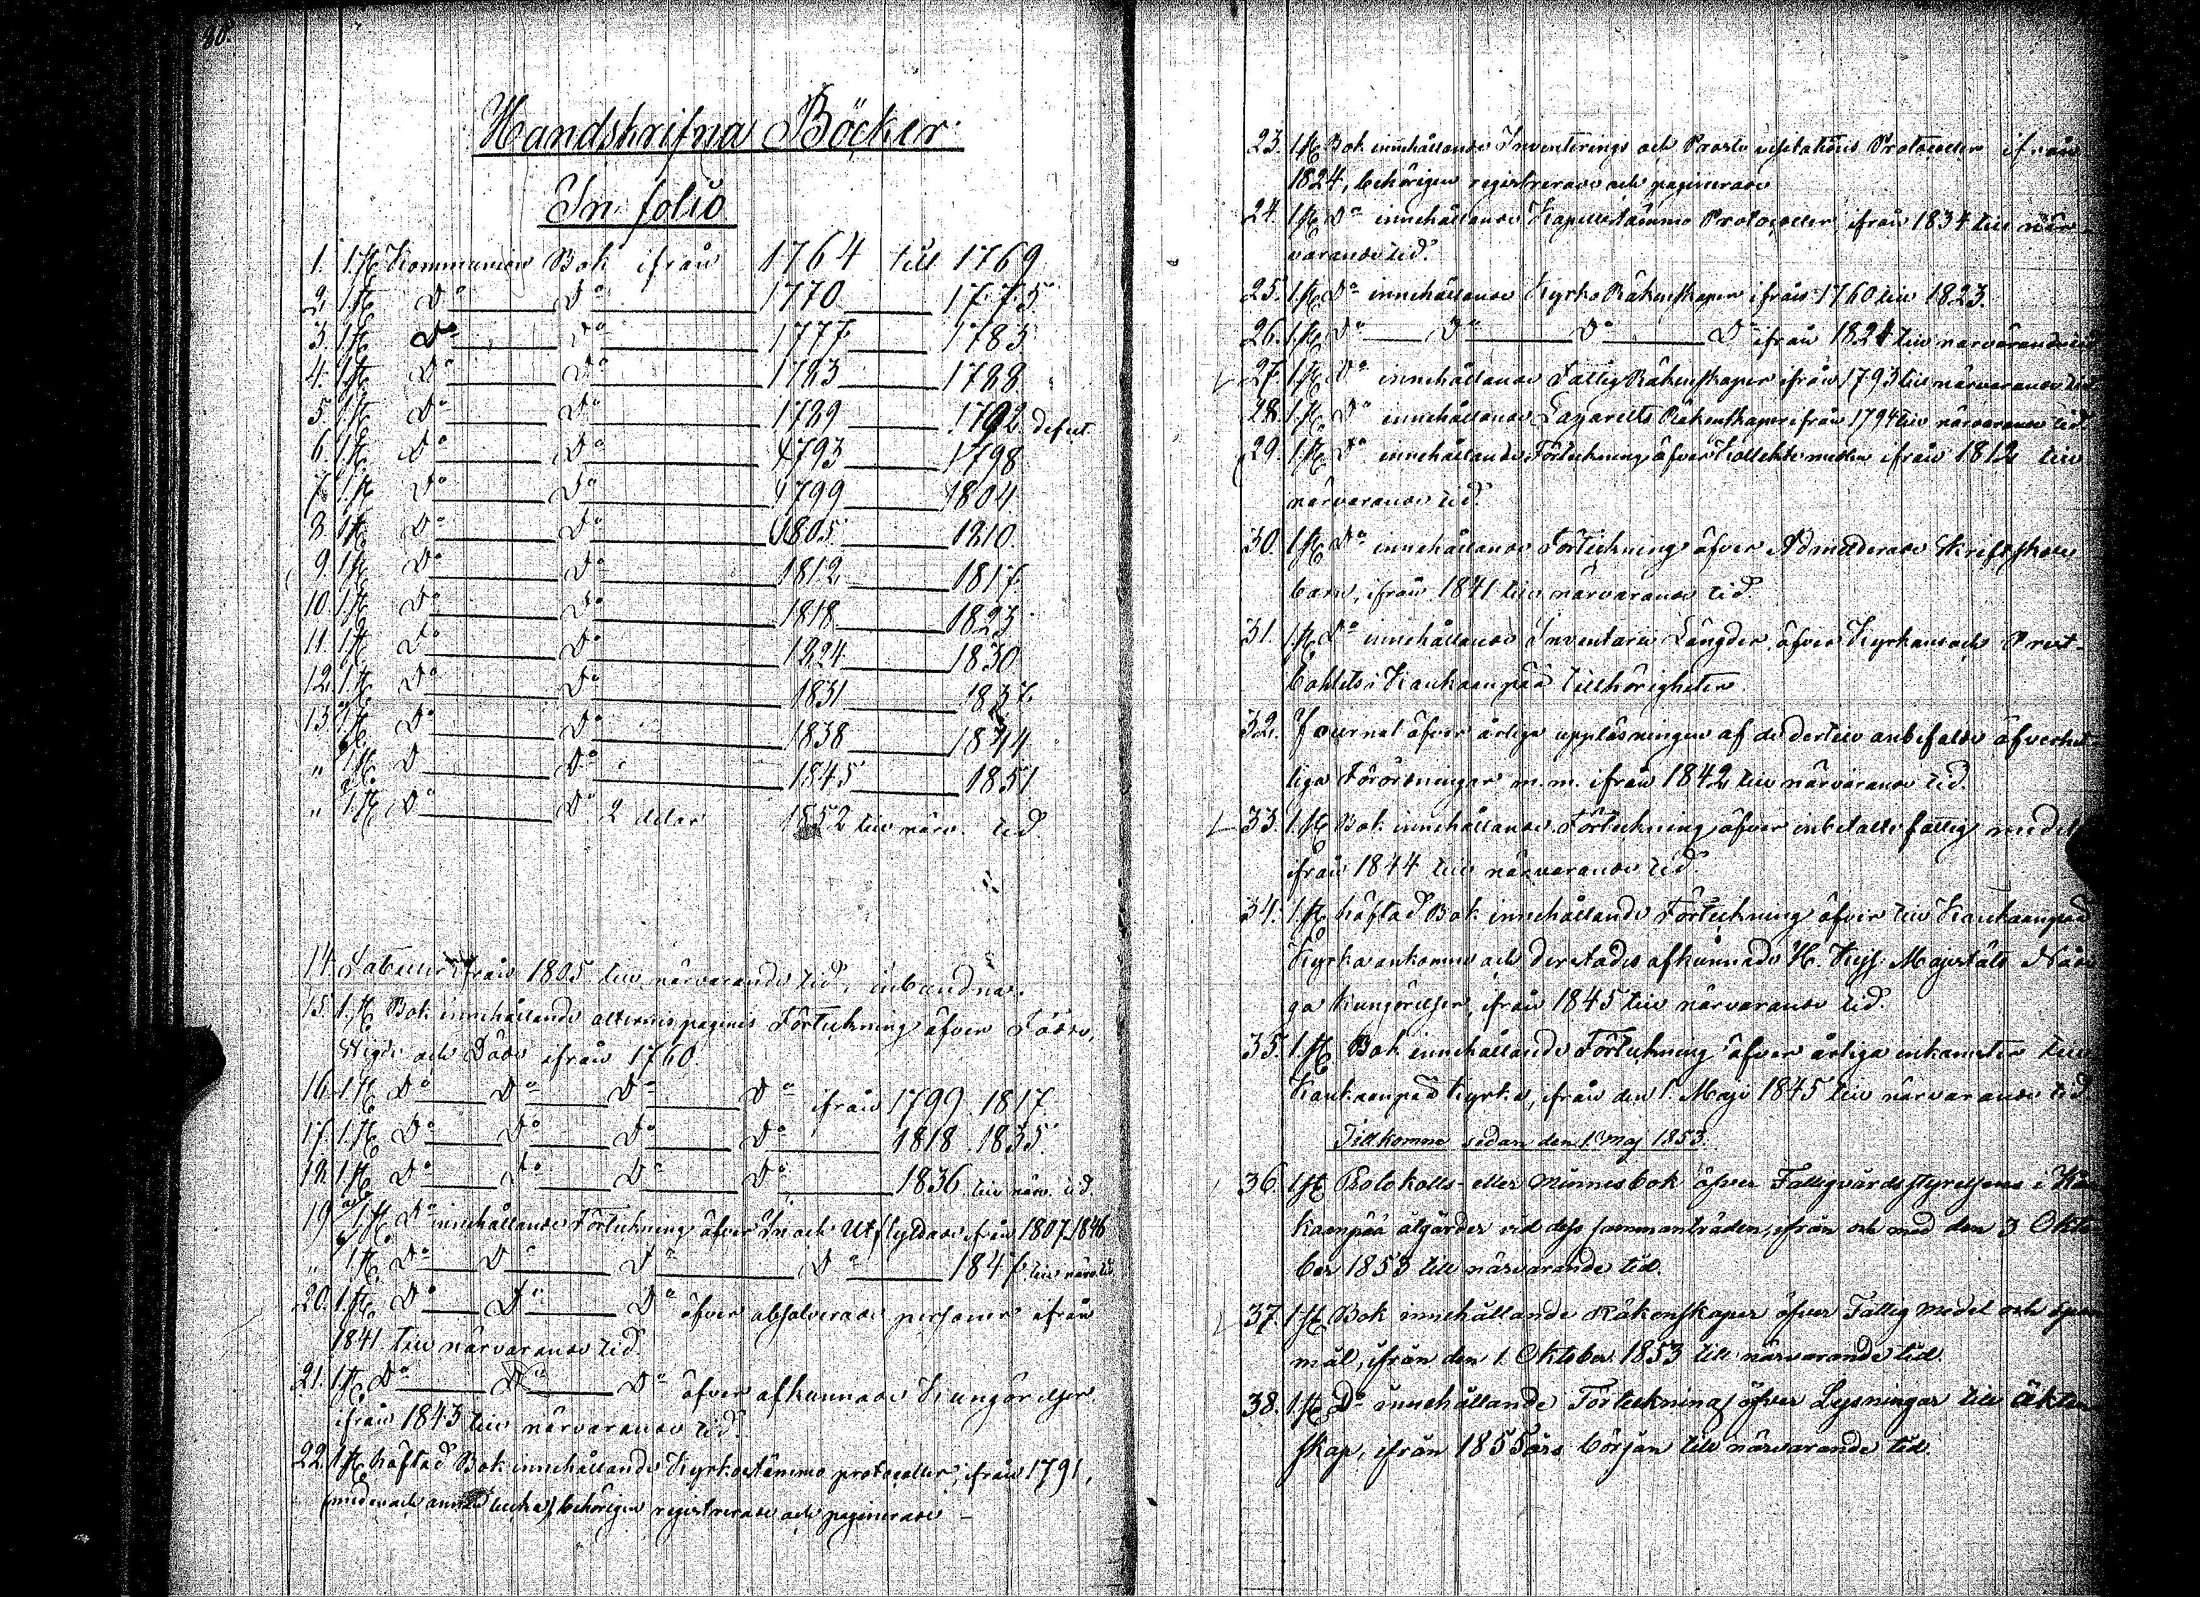 80.
Handskrifna Böcker.
In folio
1. 1. St. Kommunion Bok ifrån 1764 till 1769
2. 1. St. Do Do 1770 1775.
3. 1. St. Do Do 1777 1783
4. 1. St. Do Do 1783 1788
5. 1. St. Do Do 1789 1792 defect
6. 1. St. Do Do 1793 1798
7. 1. St. Do Do 1799 1804.
8. 1. St. Do Do 1805 1810.
9. 1. St. Do Do 1812 1817.
10. 1. St. Do Do 1818 1823
11. 1. St. Do Do 1824 1830
12. 1. St. Do Do 1831 1837.
13. 1. St. Do Do 1838 1844
" 1. St. Do Do 1845 1851
" 1. St. Do Do 2 delar 1852 till närv. tid.
14. Tabeller ifrån 1805 till närvarande tid, inbundna.
15. 1. St. Bok innehållande alternis paginis Förteckning öfver Födde,
Wigde och Döde ifrån 1760.
16. 1. St. Do Do Do Do ifrån 1799. 1817.
17. 1. St. Do Do Do Do 1818. 1835.
18. 1. St. Do Do Do Do 1836 till närv. tid.
19. 1. St. Do innehållande Förteckning öfver In och Utflyttade ifrån 1807. 1846
" 1. St. Do Do Do Do 1847. till närv. tid
20. 1. St. Do Do Do öfver absolverade personer ifrån
1841 till närvarande tid.
21. 1. St. Do Do Do öfver afkunnade Kungörelser
ifrån 1843 till närvarande tid.
22. 1. St. häftad Bok innehållande Kyrkostämmo protocoller, ifrån 1791,
behörigen registrerade och paginerade
23. 1. St. Bok innehållande Inventerings och Prosteվisitations Protocoller ifrån
1824, behörigen registrerade och paginerade
24. 1. St. Do innehållande Kapellstämmo Protocoller, ifrån 1834 till när-
varande tid.
25. 1. St. Do innehållande Kyrko Räkenskaper ifrån 1760 till 1823.
26. 1. St. Do Do Do Do ifrån 1824 till närvarande tid
27. 1. St. Do innehållande Fattig Räkenskaper ifrån 1793 till närvarande tid
28. 1. St. Do innehållande Lazaretts Räkenskaper ifrån 1794 till närvarande tid
29. 1. St. Do innehållande Förteckning öfver Kollektmedlen ifrån 1812 till
närvarande tid.
30. 1. St. Do innehållande Förteckning öfver Admitterade Skriftskole
barn, ifrån 1841 till närvarande tid.
31. 1. St. Do innehållande Inventarii Längder öfver Kyrkans och Prest-
bohlets i Kankaanpää tillhörigheter.
32. Journal öfver årliga uppläsningen af de dertill anbefalde öfverhet
liga Förordningar m. m. ifrån 1842 till närvarande tid.
33. 1. St. Bok innehållande Förteckning öfver inbetalte fattig medel
ifrån 1844 till närvarande tid.
34. 1. St. häftad Bok innehållande Förteckning öfver till Kankaanpää
Kyrka ankomne och derstädes afkunnade H. Kejs. Majestäts Nådi
ga Kungörelser, ifrån 1845 till närvarande tid.
35. 1. St. Bok innehållande Förteckning öfver årliga inkomster till
Kankaanpää Kyrka, ifrån den 1. Maji 1845 till närvarande tid.
Tillkomne sedan den 1 maj 1853.
36 1. St. Protokolls- eller Minnesbok öfver Fattigvårdsstyrelsens i Kan
kaanpää åtgärder vid dess sammanträden, ifrån och med den 3 Okto
ber 1853 till närvarande tid.
37. 1. St. Bok innehållande Räkenskaper öfver Fattig medel och Span
mål, ifrån den 1. Oktober 1853 till närvarande tid.
38. 1. St. Do innehållande Förteckning öfver Lysningar till äkten
skap, ifrån 1855 års början till närvarande tid.